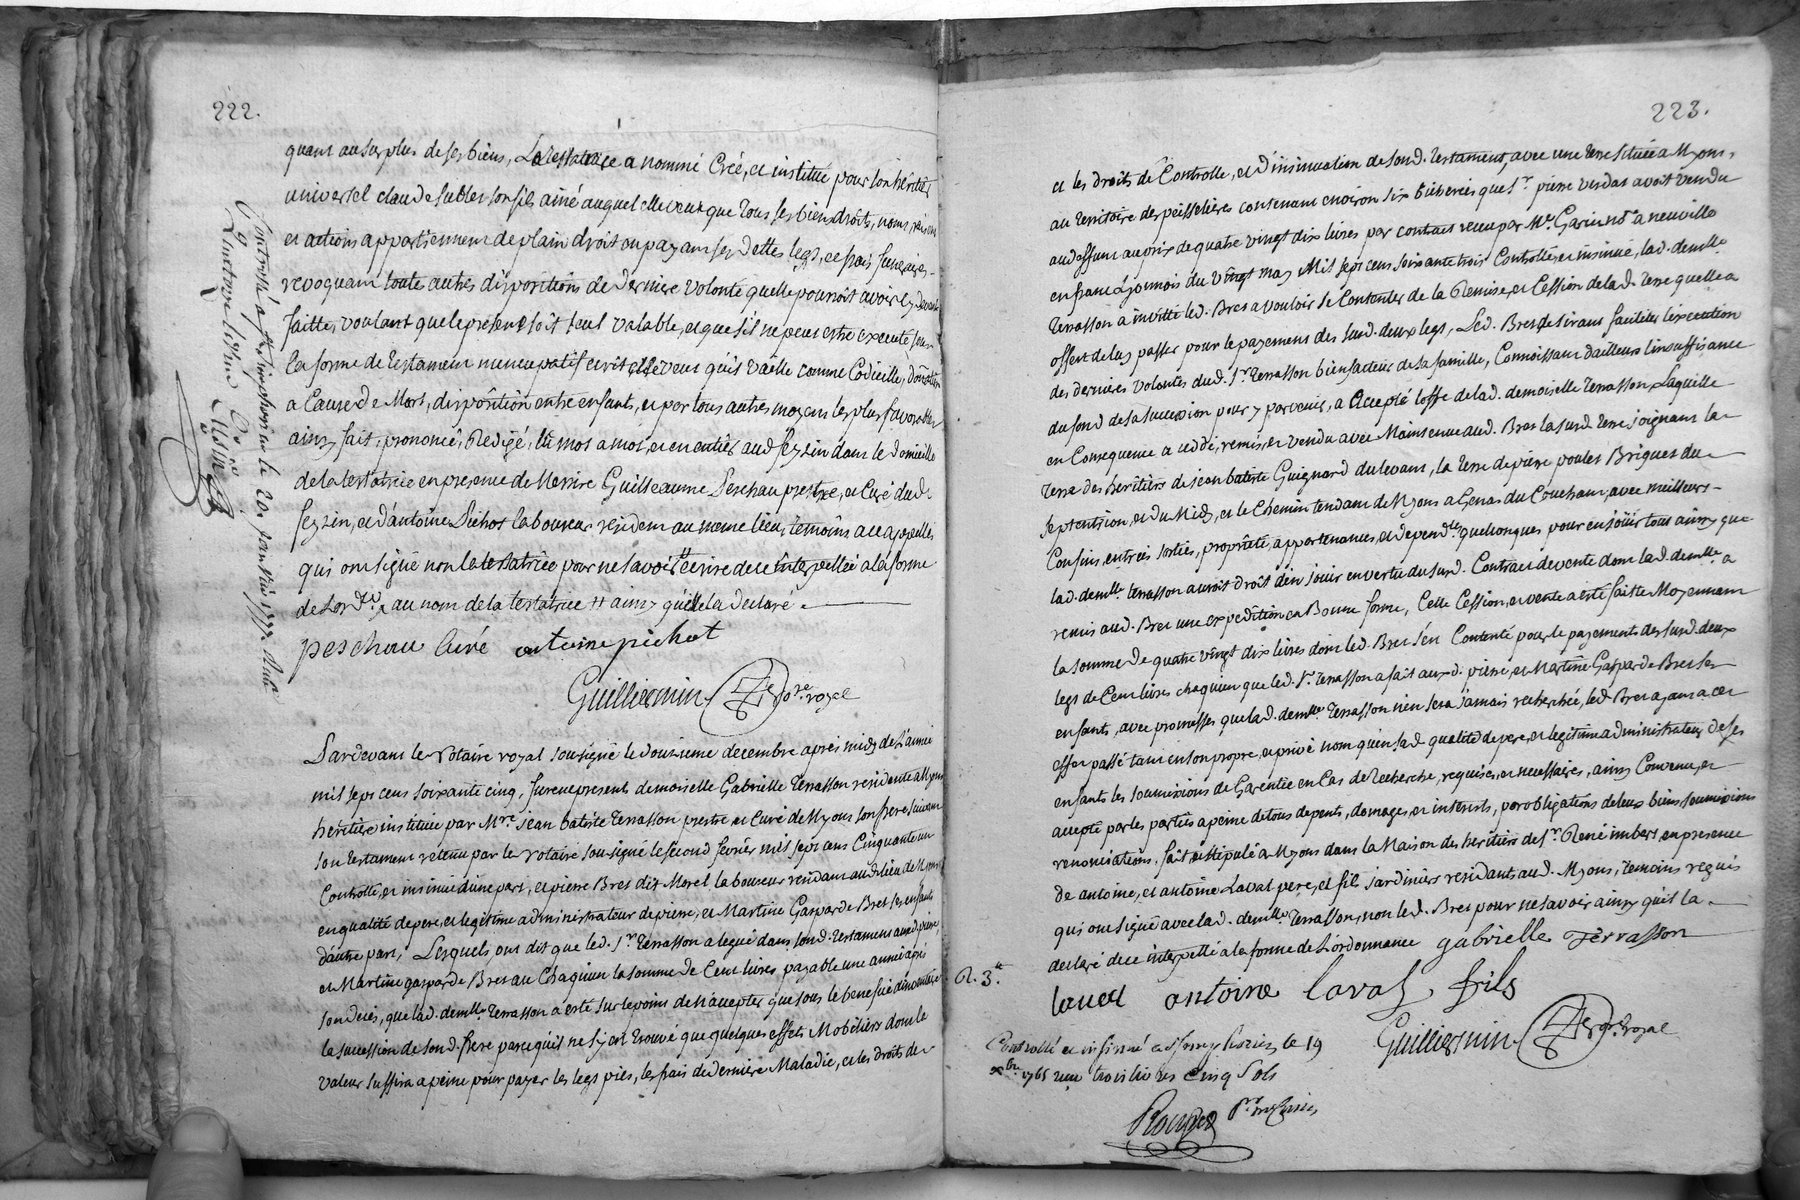 222.
quant au surplus de ses biens, La testatrice a nommé Créé, et institué pour son héritier
universel claude sublet son fils ainé auquel elle veut que tous ses biens droits, noms, raisons
et actions appartiennent de plain droit en payant ses dettes legs, et frais funeraires.
revoquant toute autres dispositions de derniere volonté quelle pourroit avoir cy devant
faitte, voulant que le present soit seul valable, et que s'il ne peut estre executé sur
la forme de testament nuncupatif ecrit elle veut qu'il vaille comme Codicille, donnation
a Cause de Mort, disposition entre enfants, et par tous autres moyens les plus favorables
ainsy fait, prononcé, Redigé, lû mot a mot, et en entier aud. feyzin dans le domicille
de la testatrice en presence de Messire Guilleaume Peschau prestre, et Curé dud.
feyzin, et d'antoine Pichot laboureur residant au meme lieu, temoins a ce appellés
qui ont signé non la testatrice pour ne savoir ecrire de ce interpellée a la forme
de Lord.ce au nom de la testatrice # ainsy qu'elle la declaré.
peschau Curé antoine pichot
Guilliermin no.re royal
Controllé a St Simphorien le 20 janvier 1777
Pardevant le Notaire royal sousigné le douzieme decembre après midy de L'année
mil sept cens soixante cinq, furent presents demoiselle Gabrielle Terrasson residente a Myons
heritiere instituée par M.re jean batiste Terrasson prestre et Curé de Myons son frere suivant
son testament retenu par le Notaire sousigné le second fevrier mil sept cens Cinquante un
Controllé, et insinué d'une part, et pierre Bret dit Morel laboureur residant aud. lieu de Myons
en qualité de pere, et legitime administrateur de pierre, et Martine Gasparde Bret ses enfants
d'autre part, Lesquels ont dit que led. S.r Terrasson a legué dans sond. testament aud. pierre
et Martine gasparde Bret au Chaquun la somme de Cent livres payable une année après
son decès, que lad. dem.lle Terrasson a esté sur le point de n'accepter que sous le benefice d'inventaire
la succession de sond. frere parcequ'il ne s'y est trouvé que quelques effets Mobiliers dont la
valeur suffira a peine pour payer les legs pies, les frais de derniere Maladie, et les droits de
223.
et les droits de Controlle, et d'insinuation de sond. testament, avec une terre située a Myons,
au territoire des peisselieres contenant environ six bicherées que S.r pierre verdat avoit vendu
aud. deffunt au prix de quatre vingt dix livres par contract receu par M.e Garin no.re a neuville
en franc Lyonnois du vingt may Mil sept cens soixante trois Controllé, et insinué, lad. dem.lle
Terrasson a invitté led. Bret a vouloir se Contenter de la Remise, et Cession de lad. terre quelle a
offert de luy passer pour le payement des susd. deux legs, Led. Bret desirant faciliter l'execution
des dernieres volontés dud. S.r Terrasson bienfacteur de sa famille, Connoissant d'ailleurs l'insuffisance
du fond de sa succession pour y parvenir, a accepté l'offre de lad. demoiselle Terrasson, Laquelle
en Consequence a ceddé, remis, et vendu avec Maintenue aud. Bret la susd. terre joignant la
terre des heritiers de jean batiste Guignard du levant, la terre de pierre poulet Briguet du
septentrion, et du Midy, et le Chemin tendant de Myons a Genas du Couchant, avec meilleurs
Confins entrées sorties, proprieté, appartenances, et depend.ces quelconques pour en joüir tout ainsy que
lad. dem.lle Terrasson auroit droit d'en joüir en vertu du susd. Contract de vente dont lad. dem.lle a
remis aud. Bret une expedition en Bonne forme, Cette Cession, et vente a esté faitte Moyennant
la somme de quatre vingt dix livres dont led. Bret s'en Contenté pour le payement des susd. deux
legs de Cent livres chaquun que led. S.r Terrasson a fait auxd. pierre, et Martine Gasparde Bret ses
enfants, avec promesses que lad. dem.lle Terrasson n'en sera jamais recherchée, led Bret ayant a cet
effet passé tant en son propre, et privé nom qu'en sad. qualité de pere, et legitime administrateur de ses
enfants les soumissions de Garentie en Cas de Recherche, requises, et necessaires, ainsy Convenu, et
accepté par les parties a peine de tous depents, domages, et interests, par obligations de leurs biens soumissions
renonciations, fait, et stipulé a Myons dans la Maison des heritiers de S.r René imbert, en presence
de antoine, et antoine Laval pere, et fils jardiniers residants aud. Myons, temoins requis
qui ont signé avec lad. dem.lle Terrasson, non led. Bret pour ne savoir ainsy qu'il la
declaré de ce interpellé a la forme de L'ordonnance gabrielle Terrasson
R. 3.tt
laval antoine laval fils
Guilliermin no.re royal
Controllé et insinué a St Simphorien le 19
x.bre 1765 reçu trois livres cinq sols